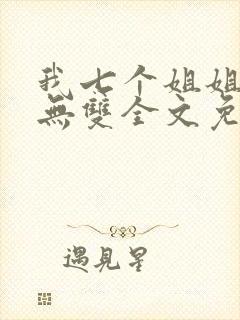 我七个姐姐
無雙全文免
遇見星